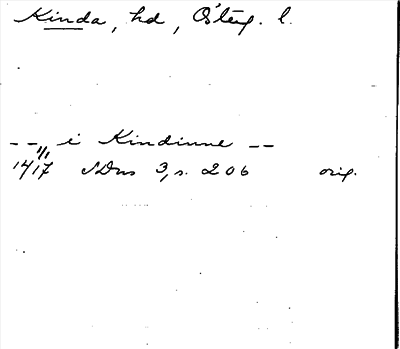 Kinda, hd, Östg. l.
-- i Kindinne --
1/1 1417 SDns 3, s. 206 orig.